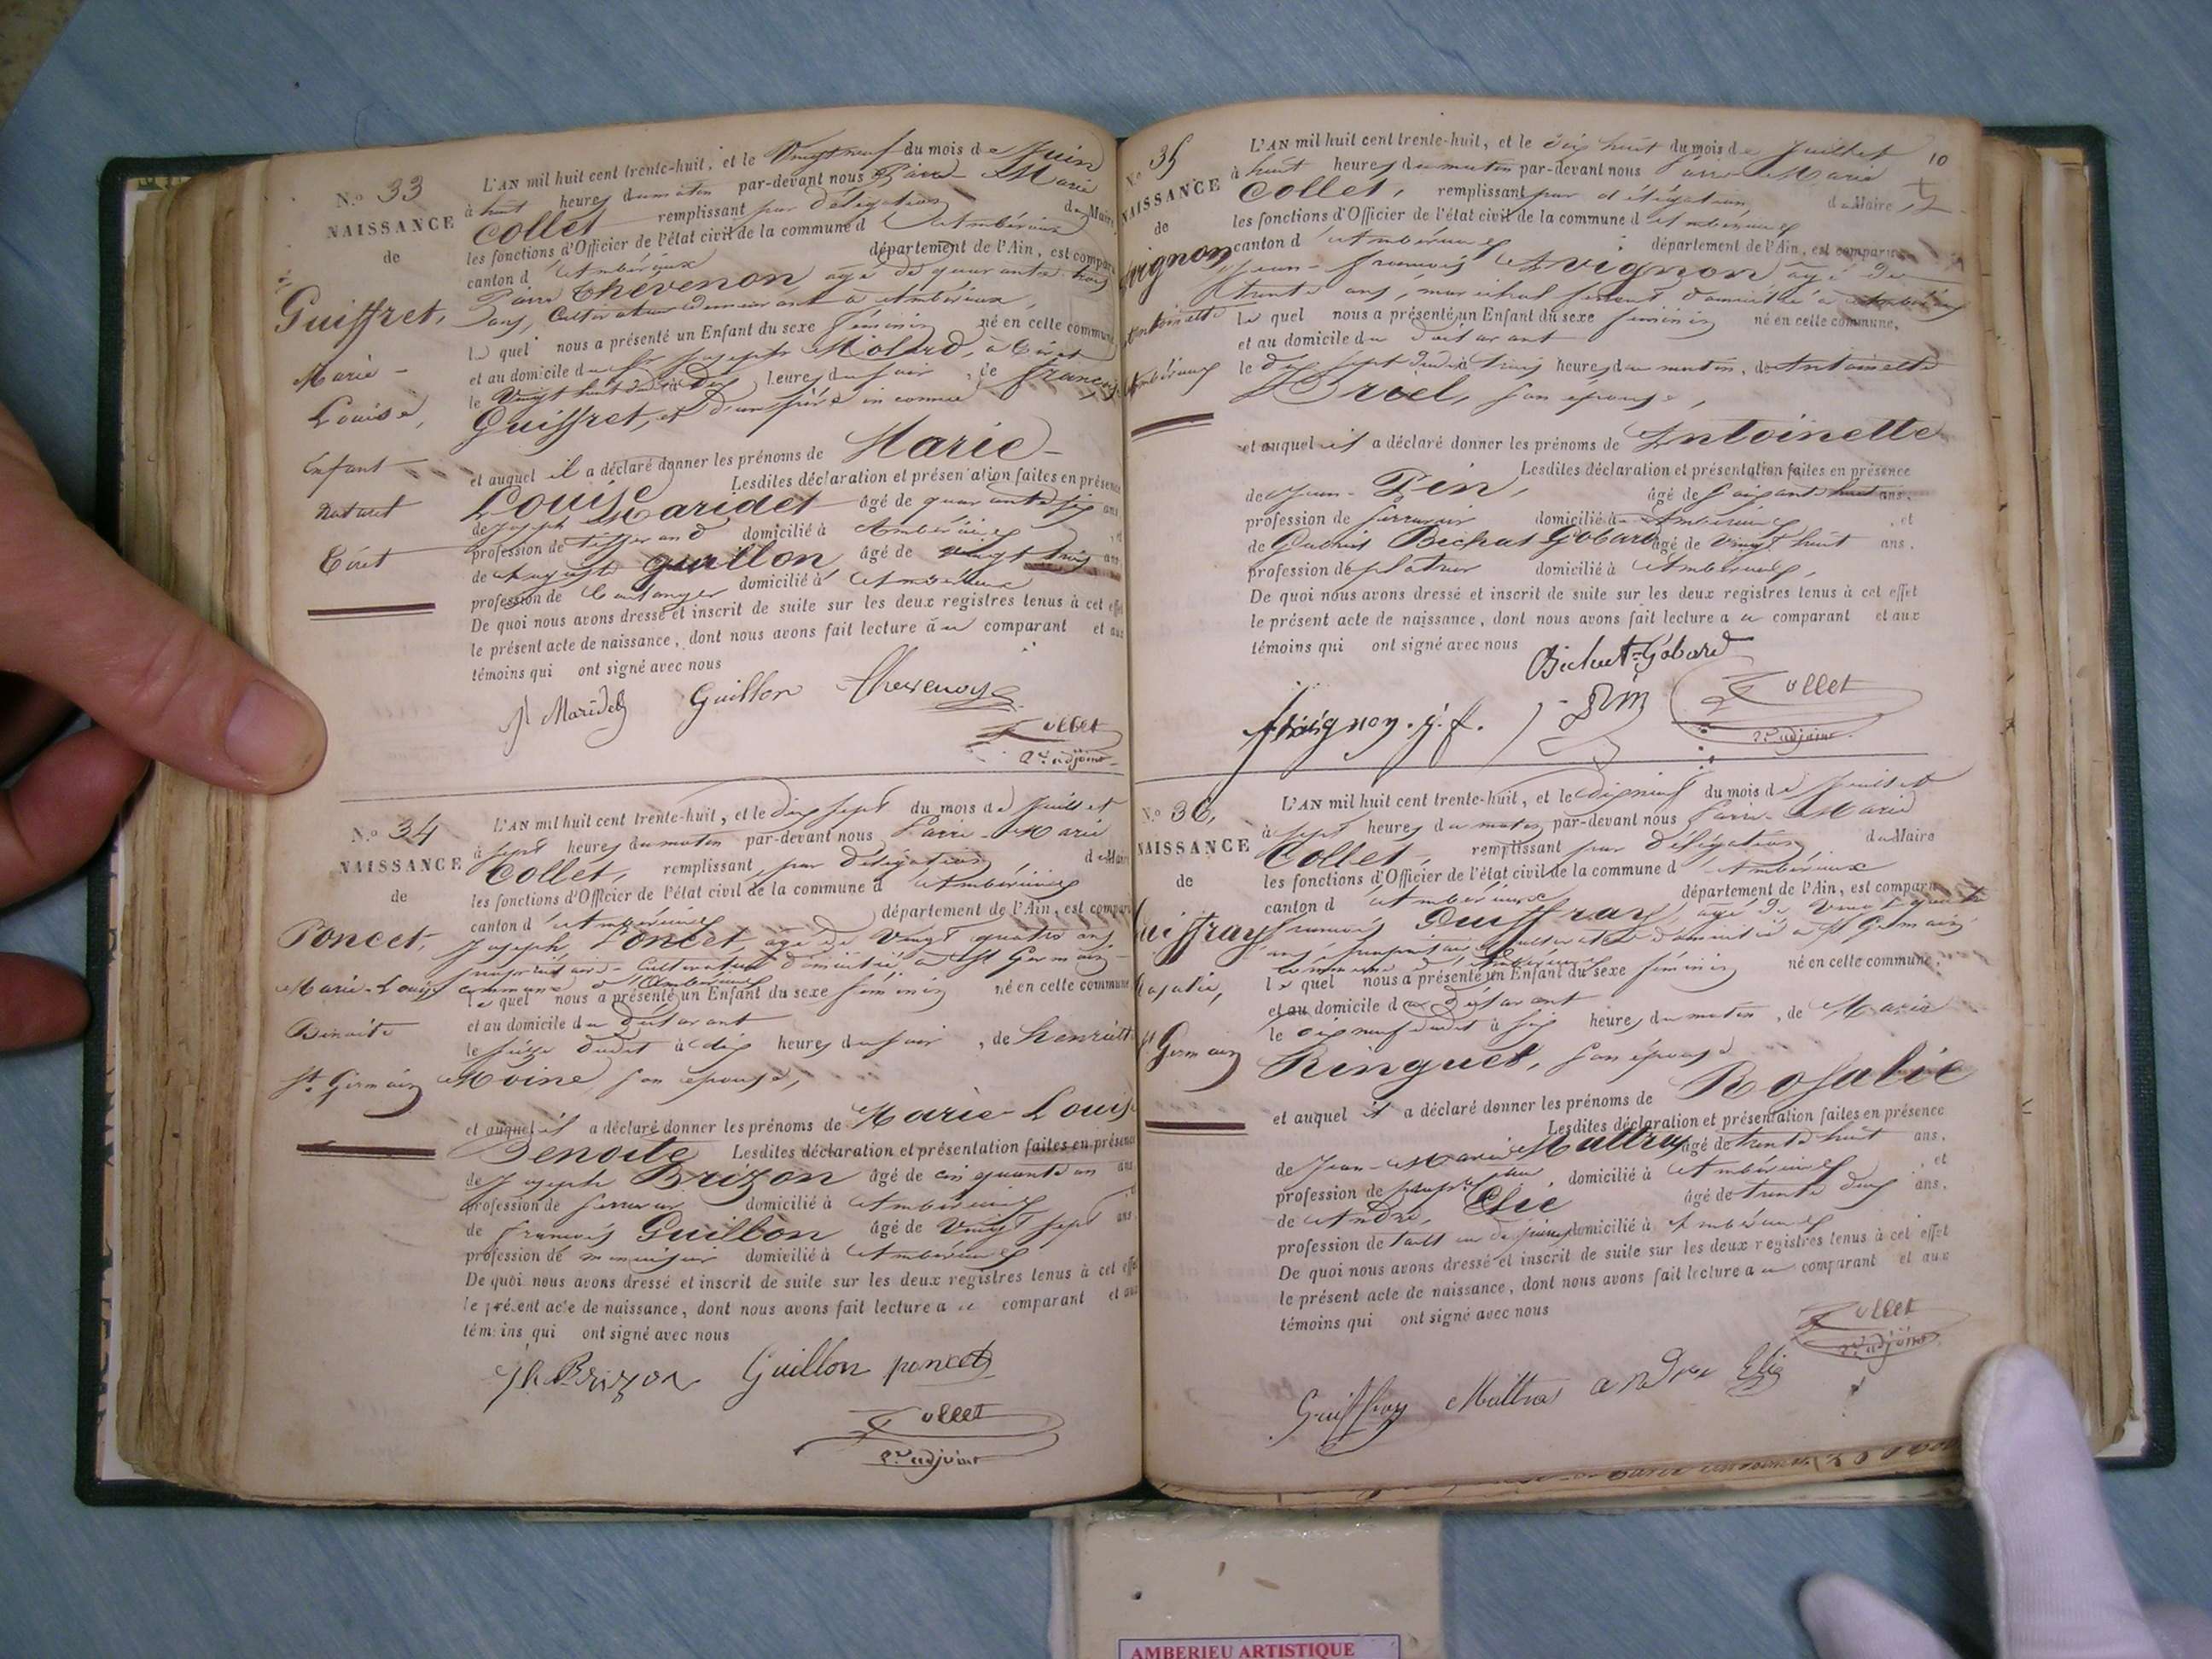 N.º 33
NAISSANCE
de
Guiffret,
Marie-
Louise,
Enfant
naturel
Tiret
L'AN mil huit cent trente-huit, et le Vingt neuf du mois de Juin
à huit heures du matin par-devant nous Pierre-Marie
Collet remplissant par délégation du Maire
les fonctions d'Officier de l'état civil de la commune d'Ambérieux
canton d'Ambérieux département de l'Ain, est comparu
Pierre Thévenon, agé de quarante trois
ans, Cultivateur demeurant à Ambérieux,
Le quel nous a présenté un Enfant du sexe féminin né en cette commune
et au domicile du Sr Joseph Molard, à Tiret
le Vingt huit dudit à Dix heures du soir, de françoise
Guiffret, et d'un père inconnu
et auquel il a déclaré donner les prénoms de Marie-
Louise Lesdites déclaration et présentation faites en présence
de Joseph Maridet âgé de quarante six ans
profession de tisserand domicilié à Ambérieux, et
de Auguste Guillon âgé de vingt trois ans
profession de boulanger domicilié à Ambérieux
De quoi nous avons dressé et inscrit de suite sur les deux registres tenus à cet effet
le présent acte de naissance, dont nous avons fait lecture au comparant et aux
témoins qui ont signé avec nous
J Maridet Guillon Thevenon
Collet
2e adjoint
N.º 34
NAISSANCE
de
Poncet,
Marie-Louise
Benoite
St. Germain
L'AN mil huit cent trente-huit, et le dix sept du mois de Juillet
à sept heures du matin par-devant nous Pierre-Marie
Collet, remplissant par délégation du Maire
les fonctions d'Officier de l'état civil de la commune d'Ambérieux
canton d'Ambérieux département de l'Ain, est comparu
Joseph Poncet, âgé de Vingt quatre ans,
propriétaire-Cultivateur domicilié à St Germain
commune d'Ambérieux
Le quel nous a présenté un Enfant du sexe féminin né en cette commune
et au domicile du Déclarant
le seize dudit à dix heures du soir, de Henriette
Moine, son épouse,
et auquel il a déclaré donner les prénoms de Marie-Louise
Benoite Lesdites déclaration et présentation faites en présence
de Joseph Brizon âgé de cinquante un ans
profession de serrurier domicilié à Ambérieux, et
de françois Guillon âgé de Vingt sept ans
profession de menuisier domicilié à Ambérieux
De quoi nous avons dressé et inscrit de suite sur les deux registres tenus à cet effet
le présent acte de naissance, dont nous avons fait lecture au comparant et aux
témoins qui ont signé avec nous
Jh Brizon Guillon poncet
Collet
2e adjoint
N.º 35
NAISSANCE
de
Avignon
Antoinette
Ambérieux
10
L'AN mil huit cent trente-huit, et le dix huit du mois de Juillet
à huit heures du matin par-devant nous Pierre-Marie
Collet, remplissant par délégation du Maire
les fonctions d'Officier de l'état civil de la commune d'Ambérieux
canton d'Ambérieux département de l'Ain, est comparu
Jean-françois Avignon agé de
trente ans, maréchal ferrant domicilié à Ambérieux
Le quel nous a présenté un Enfant du sexe féminin né en cette commune,
et au domicile du Déclarant
le dix sept dudit à trois heures du matin, de Antoinette
son épouse,
et auquel il a déclaré donner les prénoms de Antoinette
Lesdites déclaration et présentation faites en présence
de Jean-Pin, âgé de soixante huit ans,
profession de serrurier domicilié à Ambérieux, et
de Gabriel Bechat Gobard âgé de Vingt huit ans,
profession de platrier domicilié à Ambérieux,
De quoi nous avons dressé et inscrit de suite sur les deux registres tenus à cet effet
le présent acte de naissance, dont nous avons fait lecture au comparant et aux
témoins qui ont signé avec nous
Bichat-Gobard
Avignon. j. f. Pin Collet
2e adjoint
N.º 36,
NAISSANCE
de
Guiffray
Rosalie,
St Germain
L'AN mil huit cent trente-huit, et le dix neuf du mois de Juillet
à sept heures du matin par-devant nous Pierre-Marie
Collet, remplissant par délégation du Maire
les fonctions d'Officier de l'état civil de la commune d'Ambérieux
canton d'Ambérieux département de l'Ain, est comparu
françois Guiffray, âgé de Vingt quatre
ans, propriétaire Cultivateur domicilié à St Germain
commune d'Ambérieux
Le quel nous a présenté un Enfant du sexe féminin né en cette commune,
et au domicile du Déclarant
le dix neuf dudit à six heures du matin, de Marie
Ringuet, son épouse
et auquel il a déclaré donner les prénoms de Rosalie
Lesdites déclaration et présentation faites en présence
de Jean-Marie Mattra âgé de trente huit ans,
profession de domicilié à Ambérieux, et
de André, Elie âgé de trente deux ans,
profession de tailleur de pierres domicilié à Ambérieux
De quoi nous avons dressé et inscrit de suite sur les deux registres tenus à cet effet
le présent acte de naissance, dont nous avons fait lecture au comparant et aux
témoins qui ont signé avec nous
Collet
2e adjoint
Guiffray Mattra andre Elie
AMBERIEU ARTISTIQUE